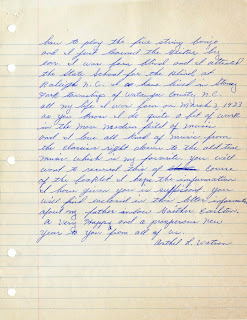 how to play the five string banjo
and I first learned the Guitar by
ear. I was born blind and I attended
the State School for the Blind at
Raleigh N.C. I have lived in Stoney
Fork township of Watauga County N.C.
all my life I was born on March 2, 1923
as you know I do quite a bit of work
in the more modern field of music
and I love all kind of music from
the classics right down to the old time
music which is my favorite you will
want to reword this of course
of the booklet I hope the information
I have given you is sufficient you
will find enclosed in this letter information
about my father inlaw Gaither Carlton.
a very Happy and a prosperous New
year to you from all of us.
Arthel L. Watson